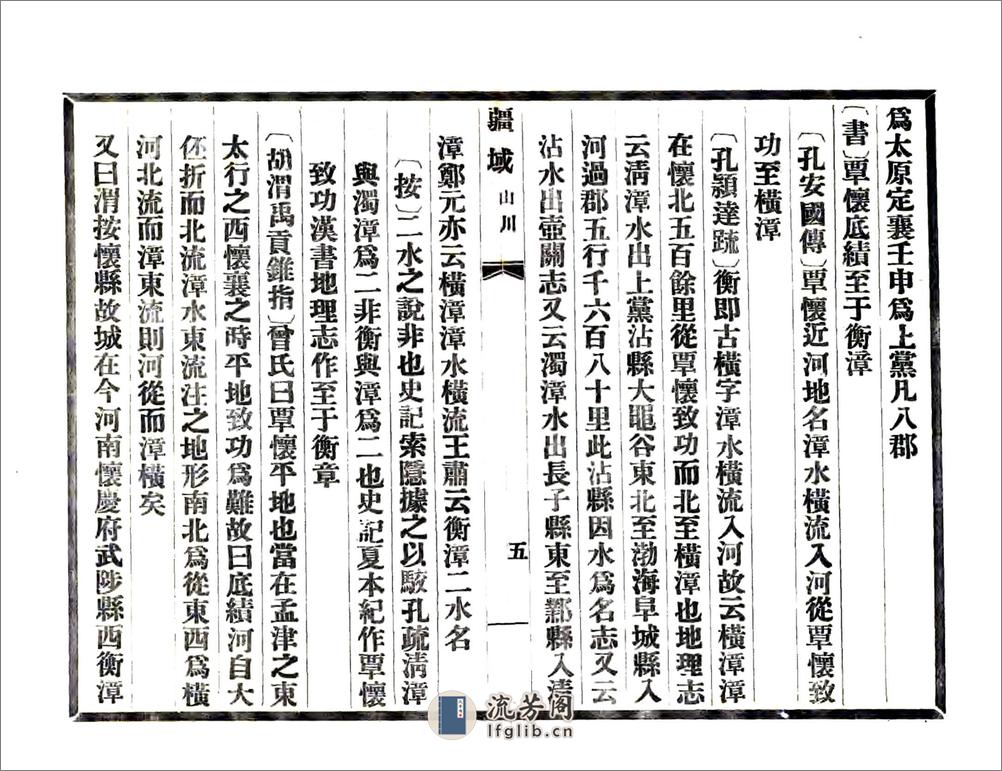 爲太原定襄壬申爲上黨凡八郡
〔書〕覃懷底績至于衡漳
〔孔安國傳〕覃懷近河地名漳水橫流入河從覃懷致
功至橫漳
〔孔頴達䟽〕衡即古橫字漳水橫流入河故云橫漳漳
在懷北五百餘里從覃懷致功而北至橫漳也地理志
云淸漳水出上黨沾縣大黽谷東北至渤海阜城縣入
河過郡五行千六百八十里此沾縣因水爲名志又云
沾水出壺關志又云濁漳水出長子縣東至鄴縣入淸
疆域 山川 五
漳鄭元亦云橫漳漳水橫流王肅云衡漳二水名
〔按〕二水之說非也史記索隱據之以駁孔疏淸漳
與濁漳爲二非衡與漳爲二也史記夏本紀作覃懷
致功漢書地理志作至于衡章
〔胡渭禹貢錐指〕曾氏曰覃懷平地也當在孟津之東
太行之西懷襄之時平地致功爲難故曰底績河自大
伾折而北流漳水東流注之地形南北爲從東西爲橫
河北流而漳東流則河從而漳橫矣
又曰渭按懷縣故城在今河南懷慶府武陟縣西衡漳
流芳阁
lfglib.cn